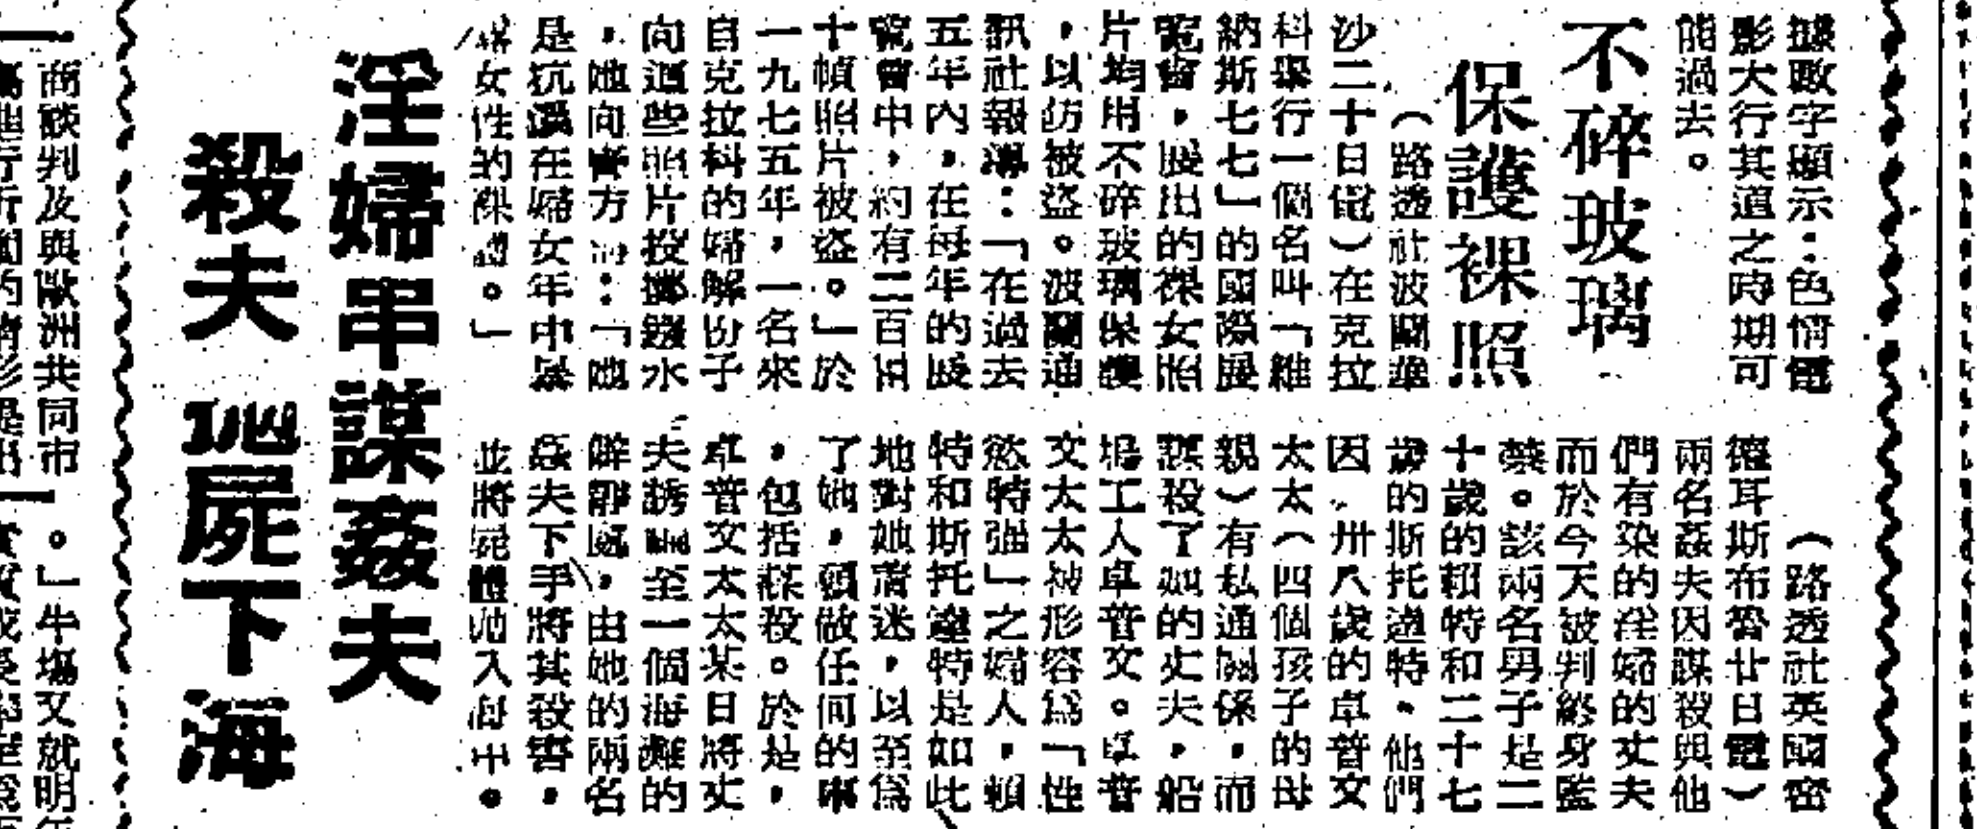 據數字顯示：色情電
影大行其道之時期可
能過去。
不碎玻璃
保護裸照
（路透社波蘭華
沙二十日電）在克拉
科舉行一個名叫「維
納斯七七」的國際展
覽會，展出的裸女照
片均用不碎玻璃保護
，以防被盜。波蘭通
訊社報導：「在過去
五年內，在每年的展
覽會中，約有二百四
十幀照片被盜。」於
一九七五年，一名來
自克拉科的婦解份子
向這些照片投擲鏹水
，她向警方說：「她
是抗議在婦女年中展
女性的裸體。」
淫婦串謀姦夫
殺夫 屍下海
（路透社英國密
德耳斯布魯廿日電）
兩名姦夫因謀殺與他
們有染的淫婦的丈夫
而於今天被判終身監
禁。該兩名男子是二
十歲的賴特和二十七
歲的斯托達特。他們
因 卅八歲的卓普文
太太（四個孩子的母
親）有私通關係，而
謀殺了她的丈夫，船
塢工人卓普文。卓普
文太太被形容爲「性
慾特强」之婦人，賴
特和斯托達特是如此
地對她着迷，以至爲
了她，願做任何的事
，包括謀殺。於是，
卓普文太太某日將丈
夫誘騙至一個海灘的
僻靜處，由她的兩名
姦夫下手將其殺害，
並將屍體 入海中。
商談判及與歐洲共同市
。」牛場又就明年